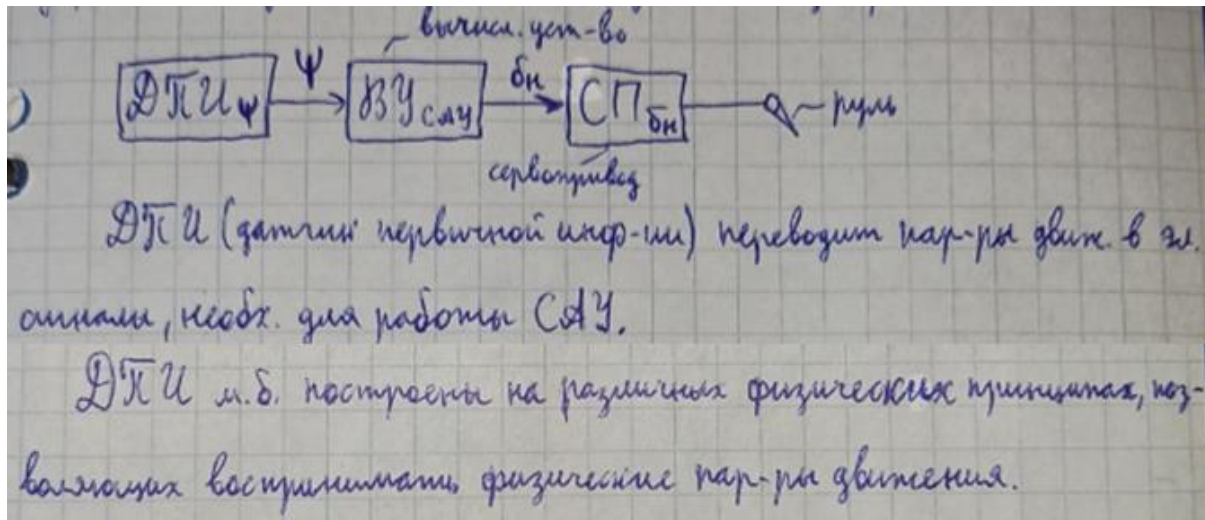 вычисл. уст-во
ДПИψ ψ ВУСАУ δн СПδн руль
сервопривод
ДПИ (датчик первичной инф-ии) переводит пар-ры движ. в эл.
сигналы, необх. для работы САУ.
ДПИ м.б. построены на различных физических принципах, поз-
воляющих воспринимать физические пар-ры движения.